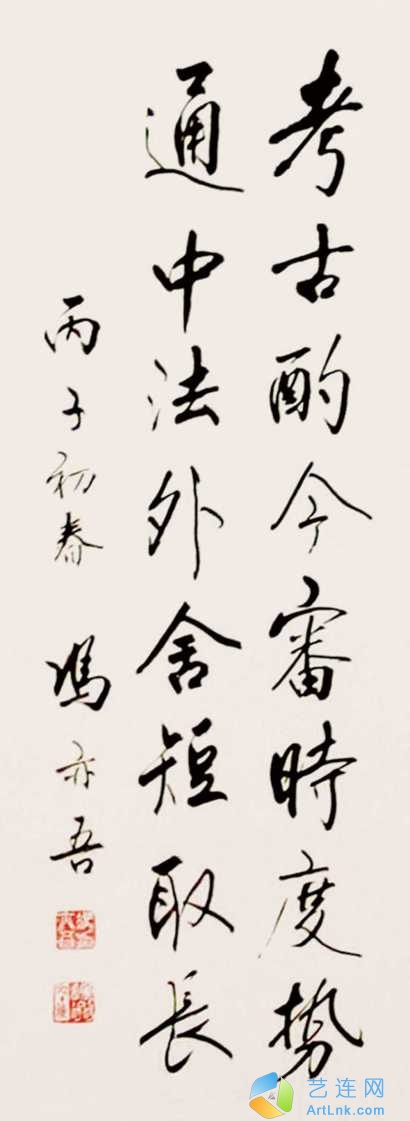 考古酌今審時度勢
通中法外舍短取長
丙子初春 馮亦吾
艺连网
ArtLnk.com